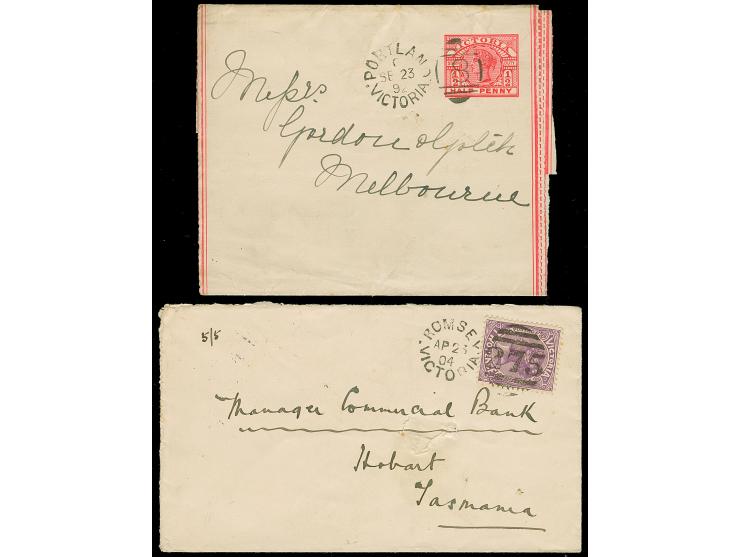 VICTORIA
PORTLAND
SE 23
92
VICTORIA
1/2
1/2
HALF PENNY
Messrs
Gordon & Gotch
Melbourne
5/5
ROMSEY
AP 23
04
VICTORIA
VICTORIA
375
Manager Commercial Bank
Hobart
Tasmania